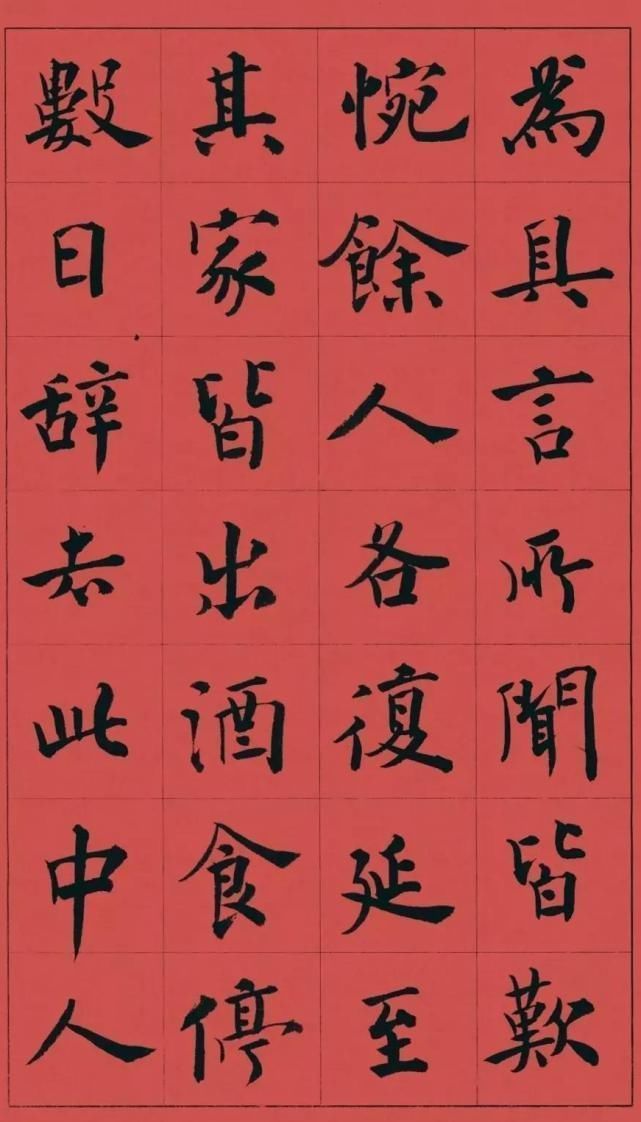 為具言所聞皆歎
惋餘人各復延至
其家皆出酒食停
數日辭去此中人